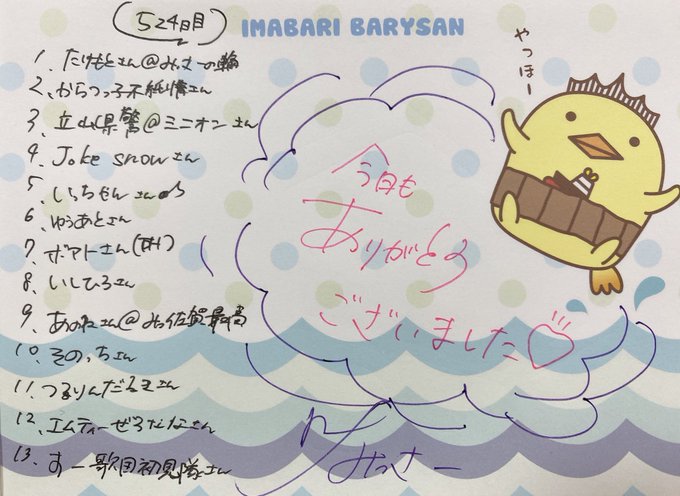 524日目
IMABARI BARYSAN
やっほー
1. たけもとさん@みっさーの輪
2. からつっ子不純情さん
3. 立山県警@ミニオンさん
4. Joke snowさん
5. しょちゃんさん
6. ゆうあとさん
7. ボアトさん
8. いしひろさん
9. あのねさん@みっ佐賀最高
10. そのっちさん
11. つるりんだるまさん
12. エムティーぜろだなさん
13. すー歌団初見隊さん
今日も
ありがとう
ございました♡
みっさー